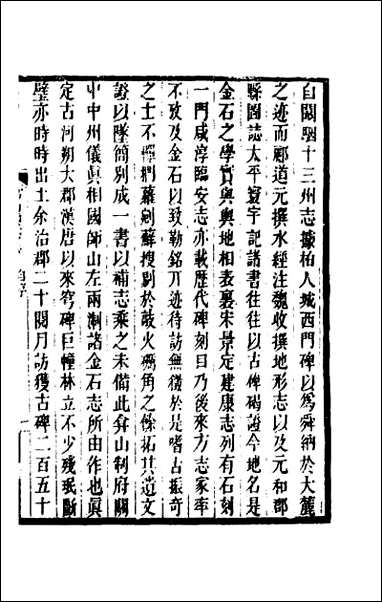 自闞駰十三州志據柏人城西門碑以爲舜納於大麓
之迹而酈道元撰水經注魏收撰地形志以及元和郡
縣圖誌太平寰宇記諸書往往以古碑碣證今地名是
金石之學實與輿地相表裏宋景定建康志列有石刻
一門咸淳臨安志亦載歷代碑刻目乃後來方志家率
不攷及金石以致勒銘刀迹待訪無徵於是嗜古振奇
之士不憚捫蘿剜蘚搜剔於敲火礪角之餘拓其遺文
證以墜簡別成一書以補志乘之未備此弇山制府關
中中州儀眞相國師山左兩淛諸金石志所由作也眞
定古河朔大郡漢唐以來穹碑巨幢林立不少殘珉斷
璧亦時時出土余治郡二十閱月訪獲古碑二百五十